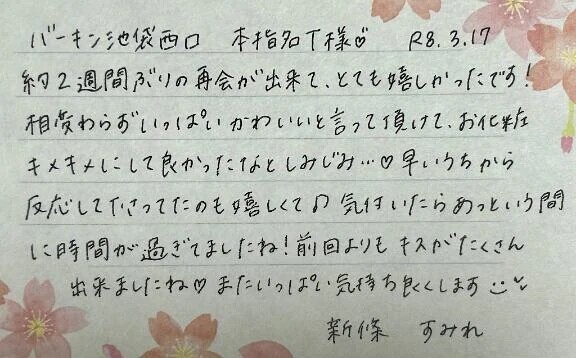 バーキン池袋西口 本指名T様♡ R8.3.17
約2週間ぶりの再会が出来て、とても嬉しかったです!
相変わらずいっぱいかわいいと言って頂けて、お化粧
キメキメにして良かったなとしみじみ…♡早いうちから
反応して下さってたのも嬉しくて♪ 気付いたらあっという間
に時間が過ぎてましたね!前回よりもキスがたくさん
出来ましたね♡またいっぱい気持ち良くします
新條 すみれ